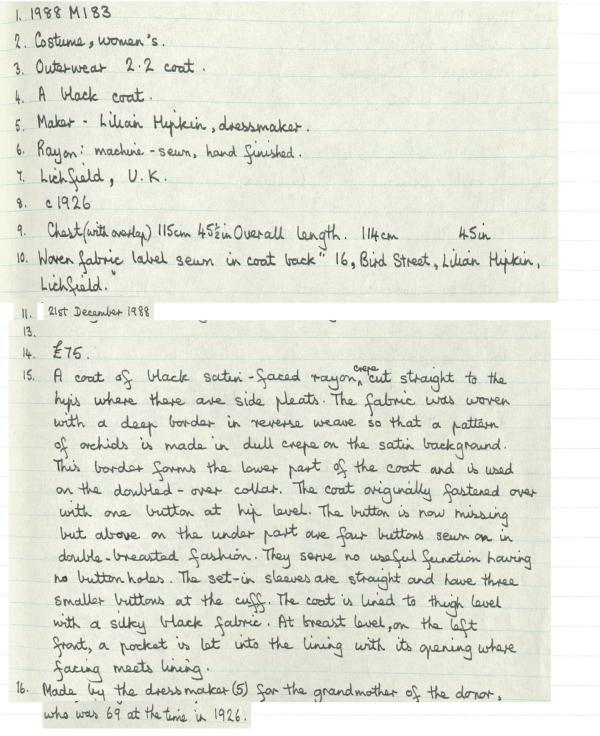 1. 1988 M183
2. Costume, women's.
3. Outerwear 2.2 coat.
4. A black coat.
5. Maker - Lilian Hipkin, dressmaker.
6. Rayon: machine-sewn, hand finished.
7. Lichfield, U.K.
8. c1926
9. Chest (with overlap) 115cm 45½in Overall length. 114cm 45in
10. Woven fabric label sewn in coat back "16, Bird Street, Lilian Hipkin,
Lichfield."
11. 21st December 1988
13.
14. £75.
15. A coat of black satin-faced rayon crepe cut straight to the
hips where there are side pleats. The fabric was woven
with a deep border in reverse weave so that a pattern
of orchids is made in dull crepe on the satin background.
This border forms the lower part of the coat and is used
on the doubled-over collar. The coat originally fastened over
with one button at hip level. The button is now missing
but above on the under part are four buttons sewn on in
double-breasted fashion. They serve no useful function having
no button holes. The set-in sleeves are straight and have three
smaller buttons at the cuff. The coat is lined to thigh level
with a silky black fabric. At breast level, on the left
front, a pocket is let into the lining with its opening where
facing meets lining.
16. Made by the dressmaker (5) for the grandmother of the donor,
who was 69 at the time in 1926.